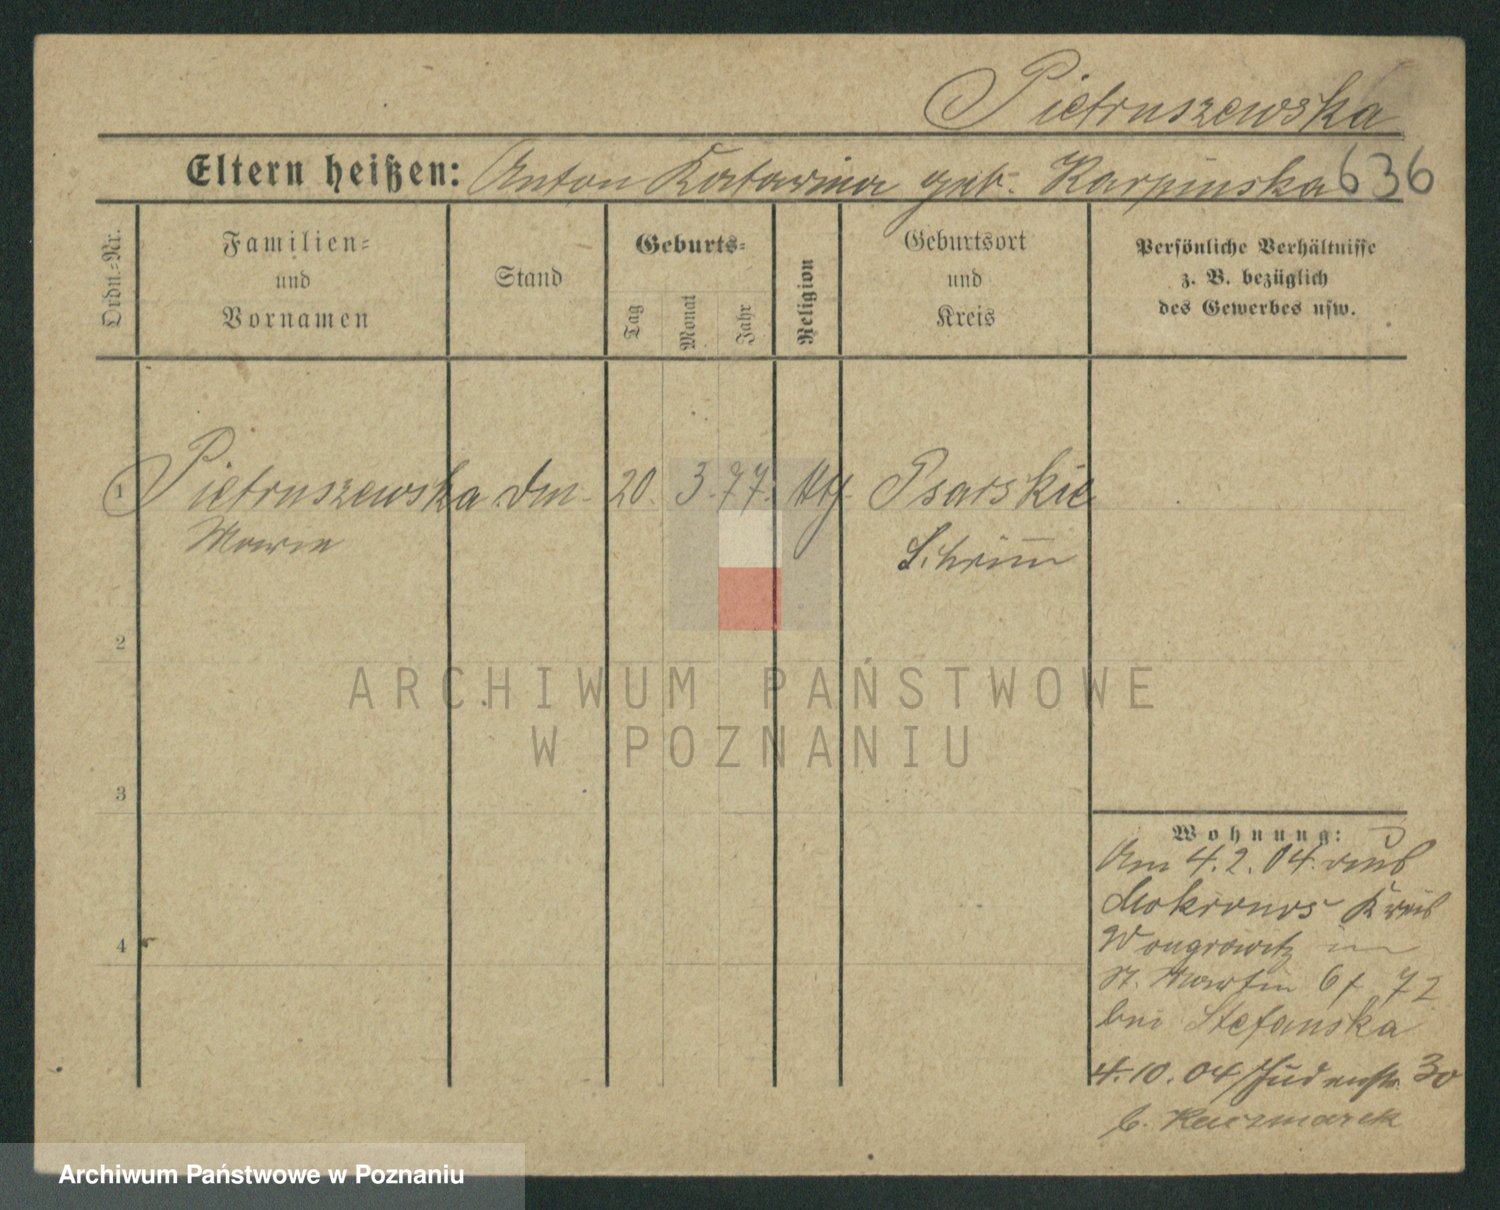 Pietruszewska
Eltern heißen: Anton Katarina geb. Karpinska 636
Ordn.=Nr.
Familien=
und
Vornamen
Stand
Geburts=
Tag
Monat
Jahr
Religion
Geburtsort
und
Kreis
Persönliche Verhältnisse
z. B. bezüglich
des Gewerbes usw.
1 Pietruszewska 20. 3. 77. Psarskie
Marie Schrimm
2
3
4
ARCHIWUM PAŃSTWOWE
W POZNANIU
Wohnung:
Am 4.2.04. aus
Mokronos Kreis
Wongrowitz in
St. Martin 72
bei Stefanska
4.10.04 Judenstr. 30
b. Kaczmarek
Archiwum Państwowe w Poznaniu